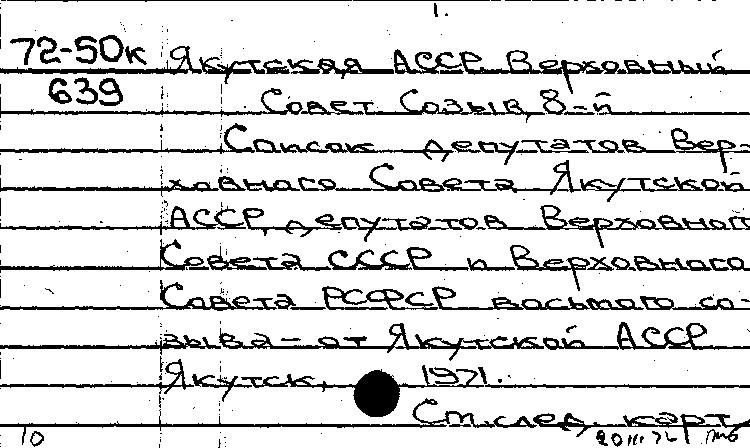 1.
72-50к Якутская АССР. Верховный
639 Совет. Созыв, 8-й
Список депутатов Вер-
ховного Совета Якутской
АССР, депутатов Верховного
Совета СССР и Верховного
Совета РСФСР восьмого со-
зыва - от Якутской АССР
Якутск, 1971.
См. след. карт.
10